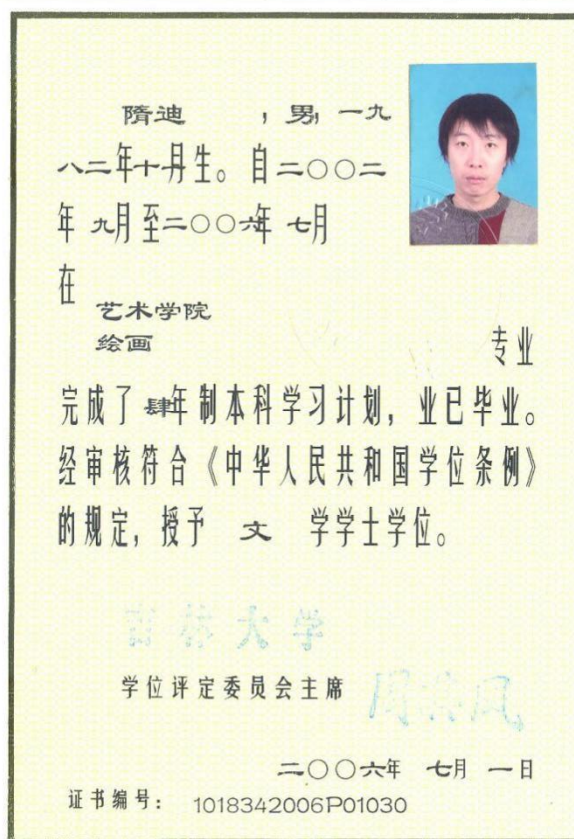 隋迪 , 男, 一九
八二年十月生。自二〇〇二
年 九月至二〇〇六年 七月
在
艺术学院
绘画 专业
完成了肆年制本科学习计划, 业已毕业。
经审核符合《中华人民共和国学位条例》
的规定, 授予 文 学学士学位。
吉林大学
学位评定委员会主席
二〇〇六年 七月 一日
证书编号: 1018342006P01030